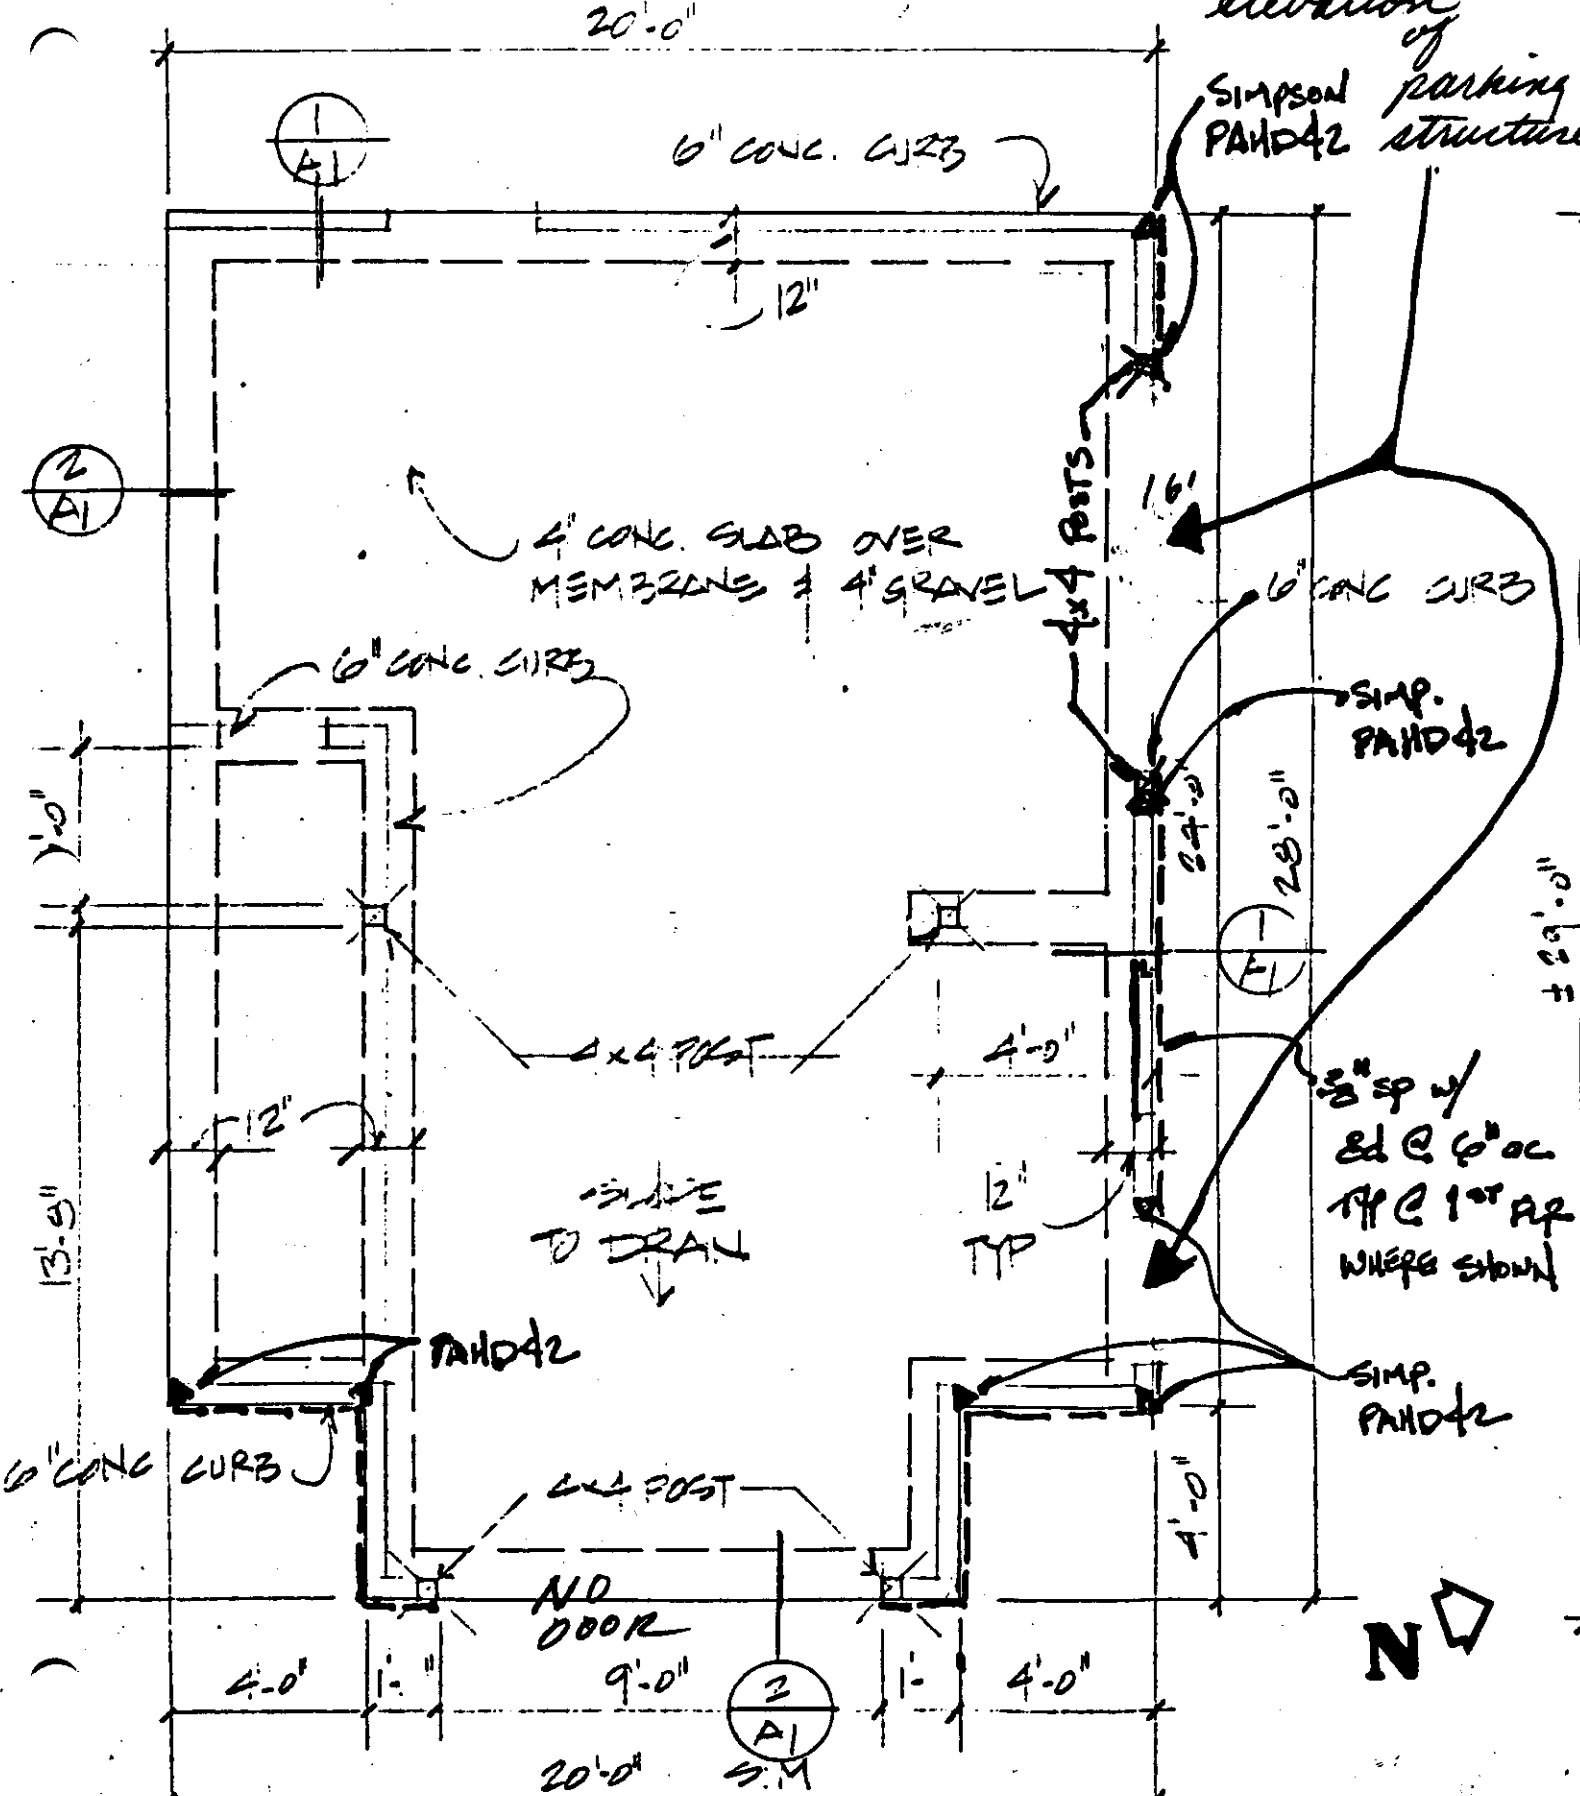 20'-0"
elevation
of
parking
structure
SIMPSON
PAHD42
1
A1
6" CONC. CURB
12"
2
A1
4" CONC. SLAB OVER
MEMBRANE & 4" GRAVEL
4x4 POSTS
16'
6" CONC CURB
6" CONC. CURB
SIMP.
PAHD42
24'-0
28'-0"
'-0"
1
A1
± 29'-0"
4x4 POST
4'-0"
3/8" SP W/
8d @ 6" OC
TYP @ 1ST FLR
WHERE SHOWN
12"
12"
TYP
SLOPE
TO DRAN
13'-9"
PAHD42
SIMP.
PAHD42
6" CONC CURB
4x4 POST
4'-0"
NO
DOOR
N
4'-0"
1'- "
9'-0"
1'-
4'-0"
2
A1
20'-0"
SIM